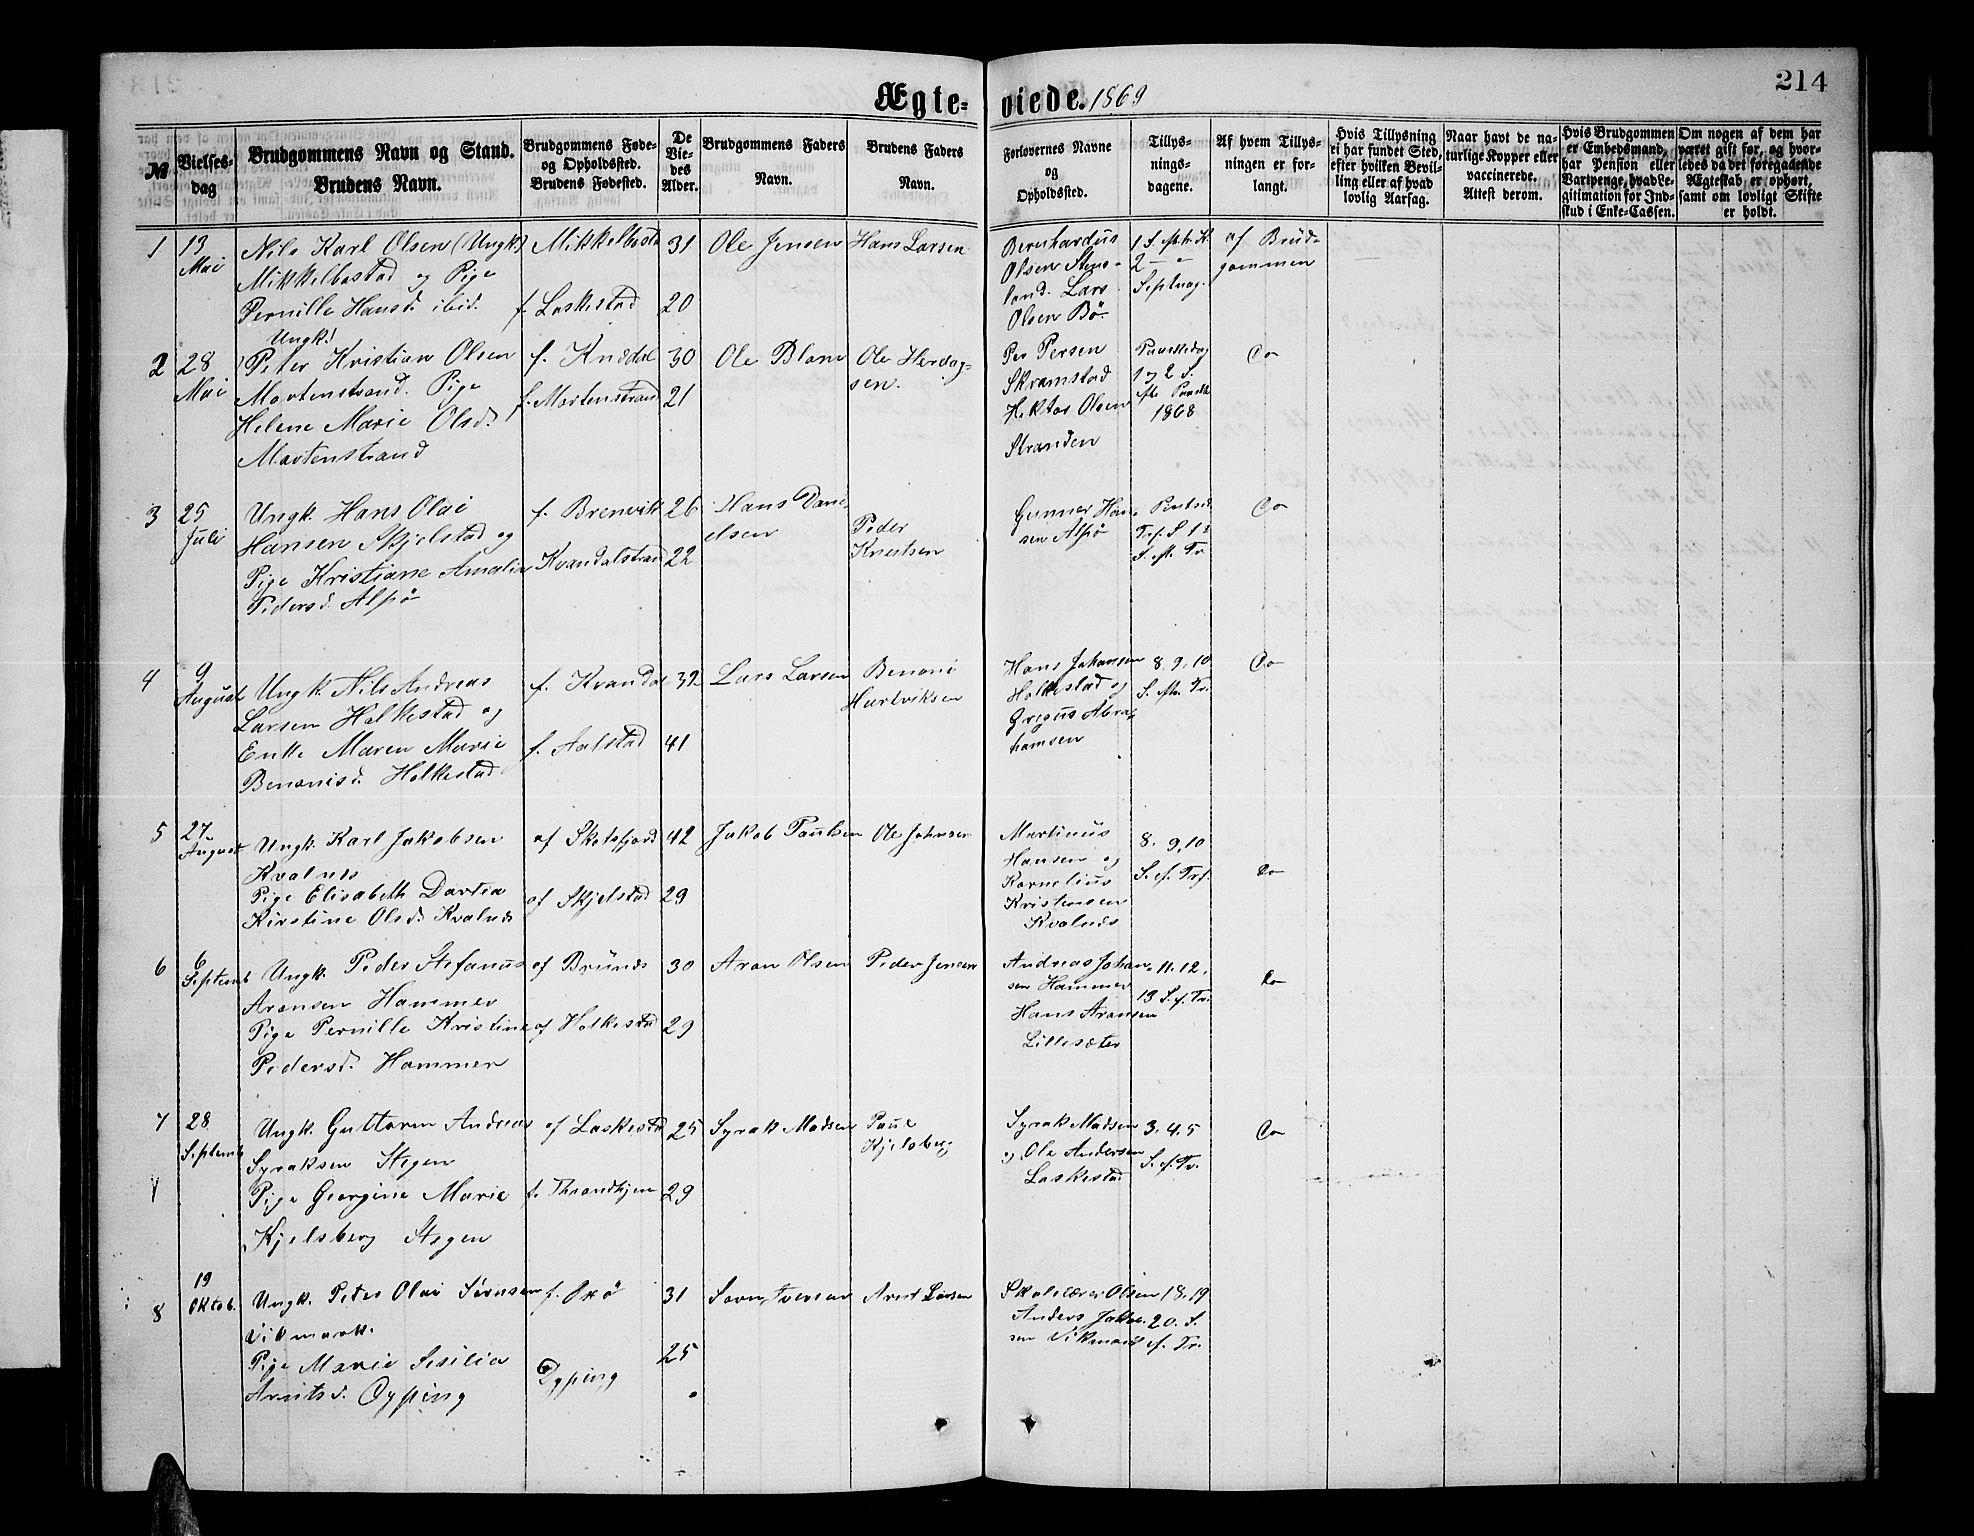 214
Ægte-viede. 1869
№
Vielses-dag
Brudgommens Navn og Stand.
Brudens Navn.
Brudgommens Føde-
og Opholdssted.
Brudens Fødested.
De
Vie-
des
Alder.
Brudgommens Faders
Navn.
Brudens Faders
Navn.
Forlovernes Navne
og
Opholdssted.
Tillys-
nings-
dagene.
Af hvem Tillys-
ningen er for-
langt.
Hvis Tillysning
ei har fundet Sted,
efter hvilken Bevil-
ling eller af hvad
lovlig Aarsag.
Naar havt de na-
turlige Kopper eller
vaccinerede.
Attest derom.
Hvis Brudgommen
er Embedsmand,
har Pension eller
Vartpenge, hvad Le-
gitimation for Ind-
skud i Enke-Cassen.
Om nogen af dem har
været gift før, og hvor-
ledes da det foregaaende
Ægteskab er ophørt,
samt om lovligt Skifte
er holdt.
1
13
Mai
Nils Karl Olsen (Ungk.)
Mikkelbostad og Pige
Pernille Hansd. ibid.
Mikkelbosta
f. Laskestad
31
20
Ole Jensen
Hans Larsen
Bernhardus
Olsen Stens-
land. Lars
Olsen Bö
1 S. eft. h. K.
2 — "
Septuag.
af Brud-
gommen
2
28
Mai
Ungk.
Peter Kristian Olsen
Martenstrand. Pige
Helene Marie Olsd.
Martenstrand
f. Knædal
f. Martenstrand
30
21
Ole Blom
Ole Herdag-
sen.
Per Persen
Skramstad
Hektor Olsen
Stranden
Paaskedag
1 og 2 S.
eft. Paaske
1868
Do
3
25
Juli
Ungk. Hans Olai
Hansen Skjelstad og
Pige Kristiane Amalia
Pedersd. Alpö
f. Brenvik
Kvandalstrand
26
22
Hans Dani-
elsen
Peder
Knutsen
Gunner Han-
sen Alpö
Pintsd.
Trf. S 1ste
S. eft. Tr.
Do
4
9
August
Ungk. Nils Andreas
Larsen Holkestad og
Enke Maren Marie
Benonisd. Holkestad
f. Kvandal
f. Aalstad
32
41
Lars Larsen
Benoni
Hartviksen
Hans Johansen
Holkestad og
Gregus Abra-
hamsen
8. 9. 10
S. eft. Tr.
Do
5
27
August
Ungk. Karl Jakobsen
Kvalnes
Pige Elisabeth Dortea
Kirstine Olsd. Kvalnæs
af Skotsfjord
af Skjelstad
42
29
Jakob Paulsen
Ole Johnsen
Martinus
Hansen og
Kornelius
Kristensen
Kvalnæs
8. 9. 10
S. ef. Trf.
Do
6
6
Septemb
Ungk. Peder Stefanus
Aronsen Hammer
Pige Pernille Kristine
Pedersd. Hammer
af Brünæs
af Holkestad
30
29
Aron Olsen
Peder Jensen
Andreas Johan-
sen Hammer
Hans Aronsen
Lillesæter
11. 12.
13 S. ef. Tr.
Do
7
28
Septemb
Ungk. Guttorm Andreas
Syraksen Stegen
Pige Georgine Marie
Kjelsberg Stegen
af Laskestad
f. Throndhjem
25
29
Syrak Madsen
Paul
Kjelsberg
Syrak Madsen
og Ole Andersen
Laskestad
3. 4. 5
S. ef. Tr.
Do
8
19
Oktob.
Ungk. Peter Olai Sörensen
Vikmark.
Pige Marie Sesilia
Arntsd. Oppsing
f. Skö
31
25
Sörn Iversen
Arnt Larsen
Skolelærer Olsen
Anders Jakob-
sen Vikmark
18. 19
20. S.
ef. Tr.